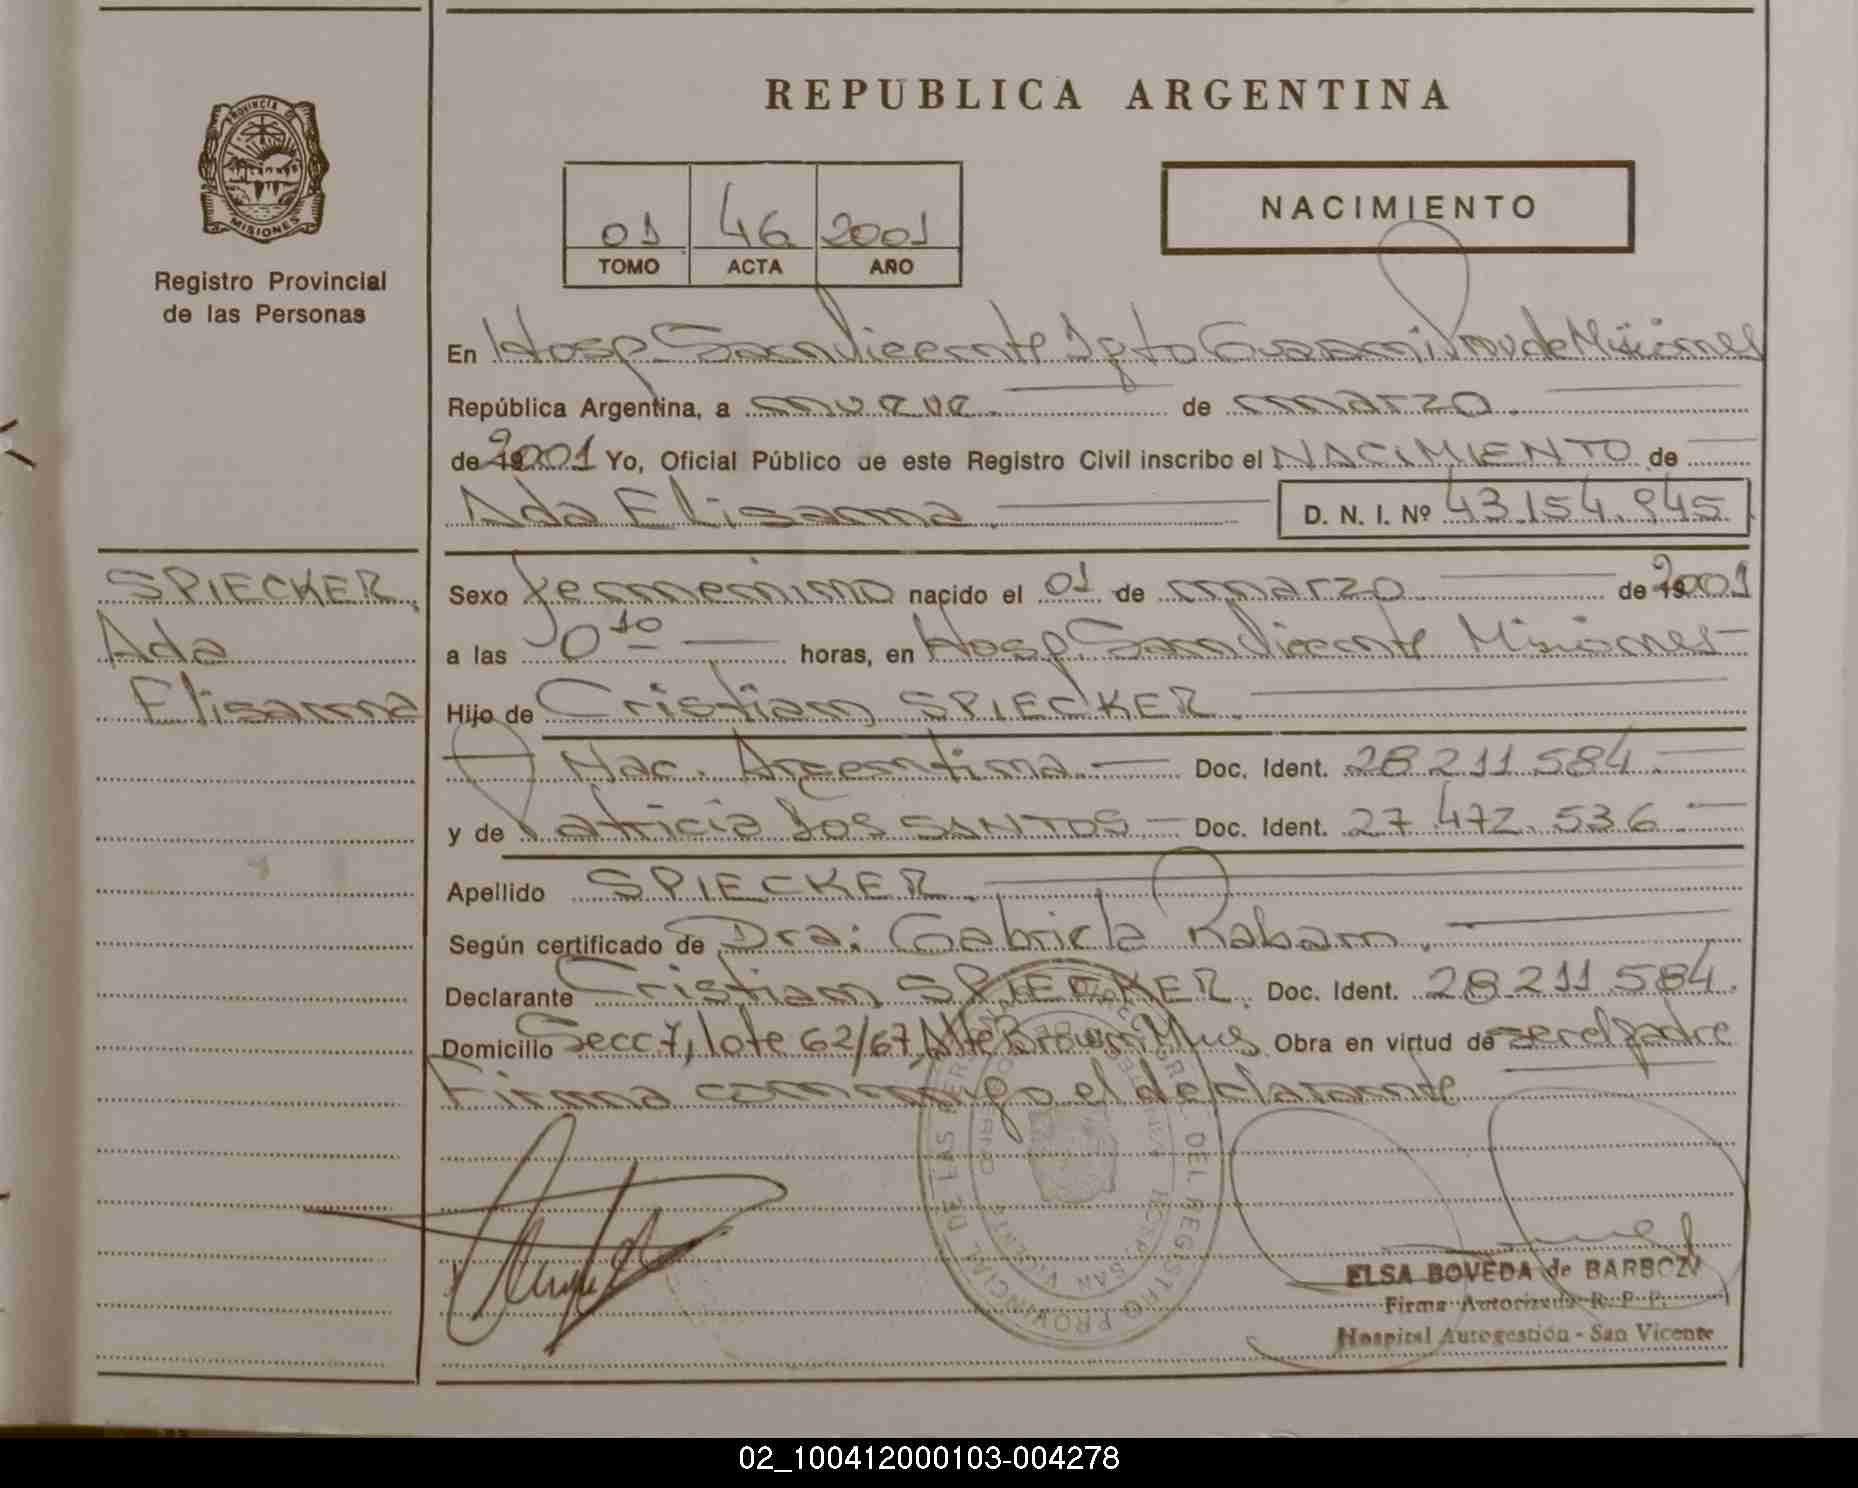 REPUBLICA ARGENTINA
PROVINCIA DE
MISIONES
Registro Provincial
de las Personas
01 46 2001
TOMO ACTA AÑO
NACIMIENTO
En Hosp. San Vicente Dpto Guarani Prov de Misiones
República Argentina, a nueve. de marzo.
de 2001 Yo, Oficial Público de este Registro Civil inscribo el NACIMIENTO de
Ada Elisanna. D. N. I. Nº 43.154.945
SPIECKER,
Ada
Elisanna
Sexo femenino nacido el 01 de marzo de 2001
a las 0 10 horas, en Hosp. San Vicente Misiones
Hijo de Cristian SPIECKER.
Nac. Argentina. Doc. Ident. 28 211 584.
y de Patricia Dos SANTOS Doc. Ident. 27 472 536
Apellido SPIECKER.
Según certificado de Dra: Gabriela Raban.
Declarante Cristian SPIECKER. Doc. Ident. 28 211 584.
Domicilio Secc 7, lote 62/67, Alte Brown Mnes Obra en virtud de ser el padre
Firma conmigo el declarante
REGISTRO PROVINCIAL DE LAS
HOSP. SAN VICENTE
ELSA BOVEDA de BARBOZA
Firma Autorizada R. P. P.
Hospital Autogestión - San Vicente
02_100412000103-004278